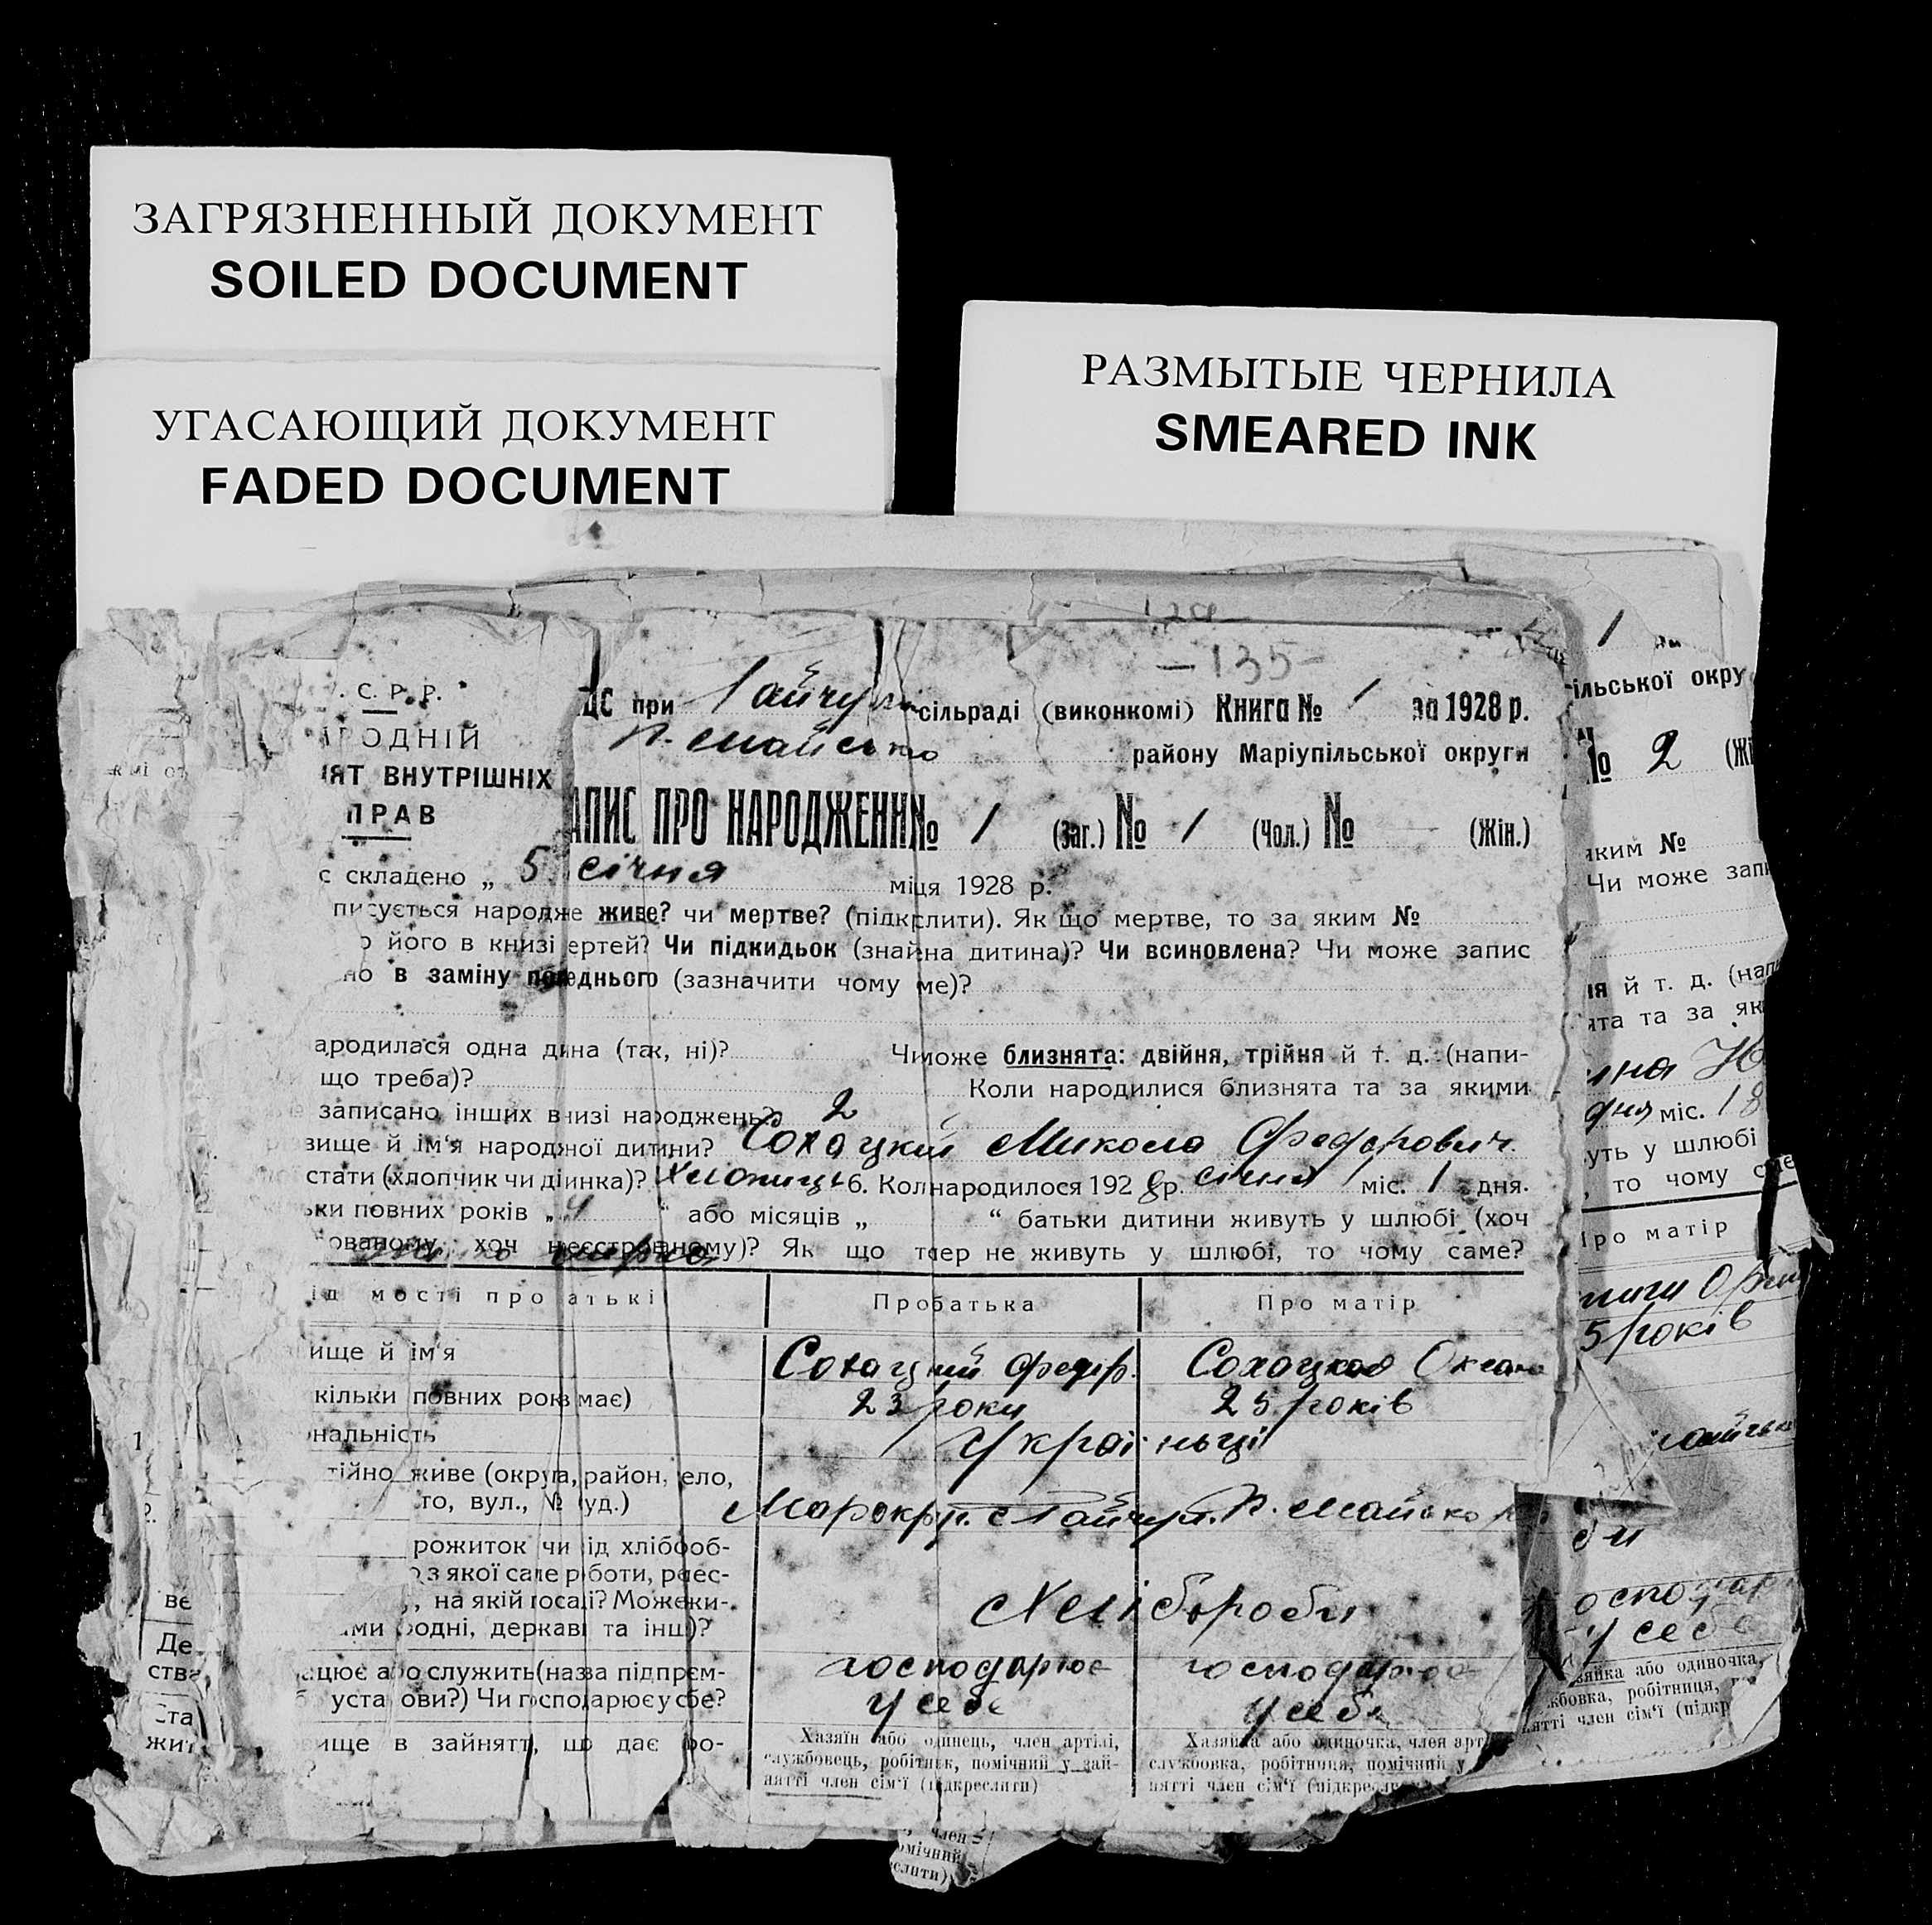 ЗАГРЯЗНЕННЫЙ ДОКУМЕНТ
SOILED DOCUMENT
УГАСАЮЩИЙ ДОКУМЕНТ
FADED DOCUMENT
РАЗМЫТЫЕ ЧЕРНИЛА
SMEARED INK
-135-
С. Р. Р.
ОДНІЙ
ВНУТРІШНІХ
ПРАВ
при Гайчул сільраді (виконкомі) Книга № 1 за 1928 р.
району Маріупільської округи
АПИС ПРО НАРОДЖЕНН № 1 (Заг.) № 1 (Чол.) № — (Жін.)
с складено „ 5 січня міця 1928 р.
писується народже живе? чи мертве? (підкрслити). Як що мертве, то за яким №
його в книзі ертей? Чи підкидьок (знайна дитина)? Чи всиновлена? Чи може запис
но в заміну поеднього (зазначити чому ме)?
ародилася одна дина (так, ні)? Чиможе близнята: двійня, трійня й т. д. (напи-
що треба)? Коли народилися близнята та за якими
записано інших внизі народжень? 2
вище й ім'я народної дитини? Сохацкий Микола Федорович.
стати (хлопчик чи діинка)? Хлопиць 6. Колнародилося 1928 р. січня міс. 1 дня.
ьки повних років „ 4 “ або місяців „ “ батьки дитини живуть у шлюбі (хоч
ованому, хоч неєстрованому)? Як що тпер не живуть у шлюбі, то чому саме?
мості про атькі Пробатька Про матір
ище й ім'я Сохацкий Федір. Сохоцкая Оксана
кільки повних роківмає) 23 роки 25 років
нальність Україньці
тійно живе (округа, район, ело,
то, вул., № уд.)
рожиток чи ід хлібооб-
з якої саме рботи, рмес-
, на якій посаді? Можеки-
ми родні, державі та інш)? Хліборобы
цює або служить(назва підпрєм-
уста ови?) Чи господарюєу сбе? господарює у себе господарює у себе
вище в зайнятт, що дає ро-
Хазяїн або одинець, член артілі,
службовець, робітник, помічний у зай-
нятті член сім'ї (підкреслити)
Хазяйка або одиночка, член арт
службовка, робітниця, помічний у
нятті член сім'ї (підкресл
1
ільської окру
№ 2 (Жі
яким №
Чи може запи
ня й т. д. (нап
ята та за як
дня міс. 18
уть у шлюбі
, то чому с
Про матір
5 років
господар
у себе
зяйка або одиночка,
жбовка, робітниця,
нятті член сім'ї (підкр
член
омічний
слити)